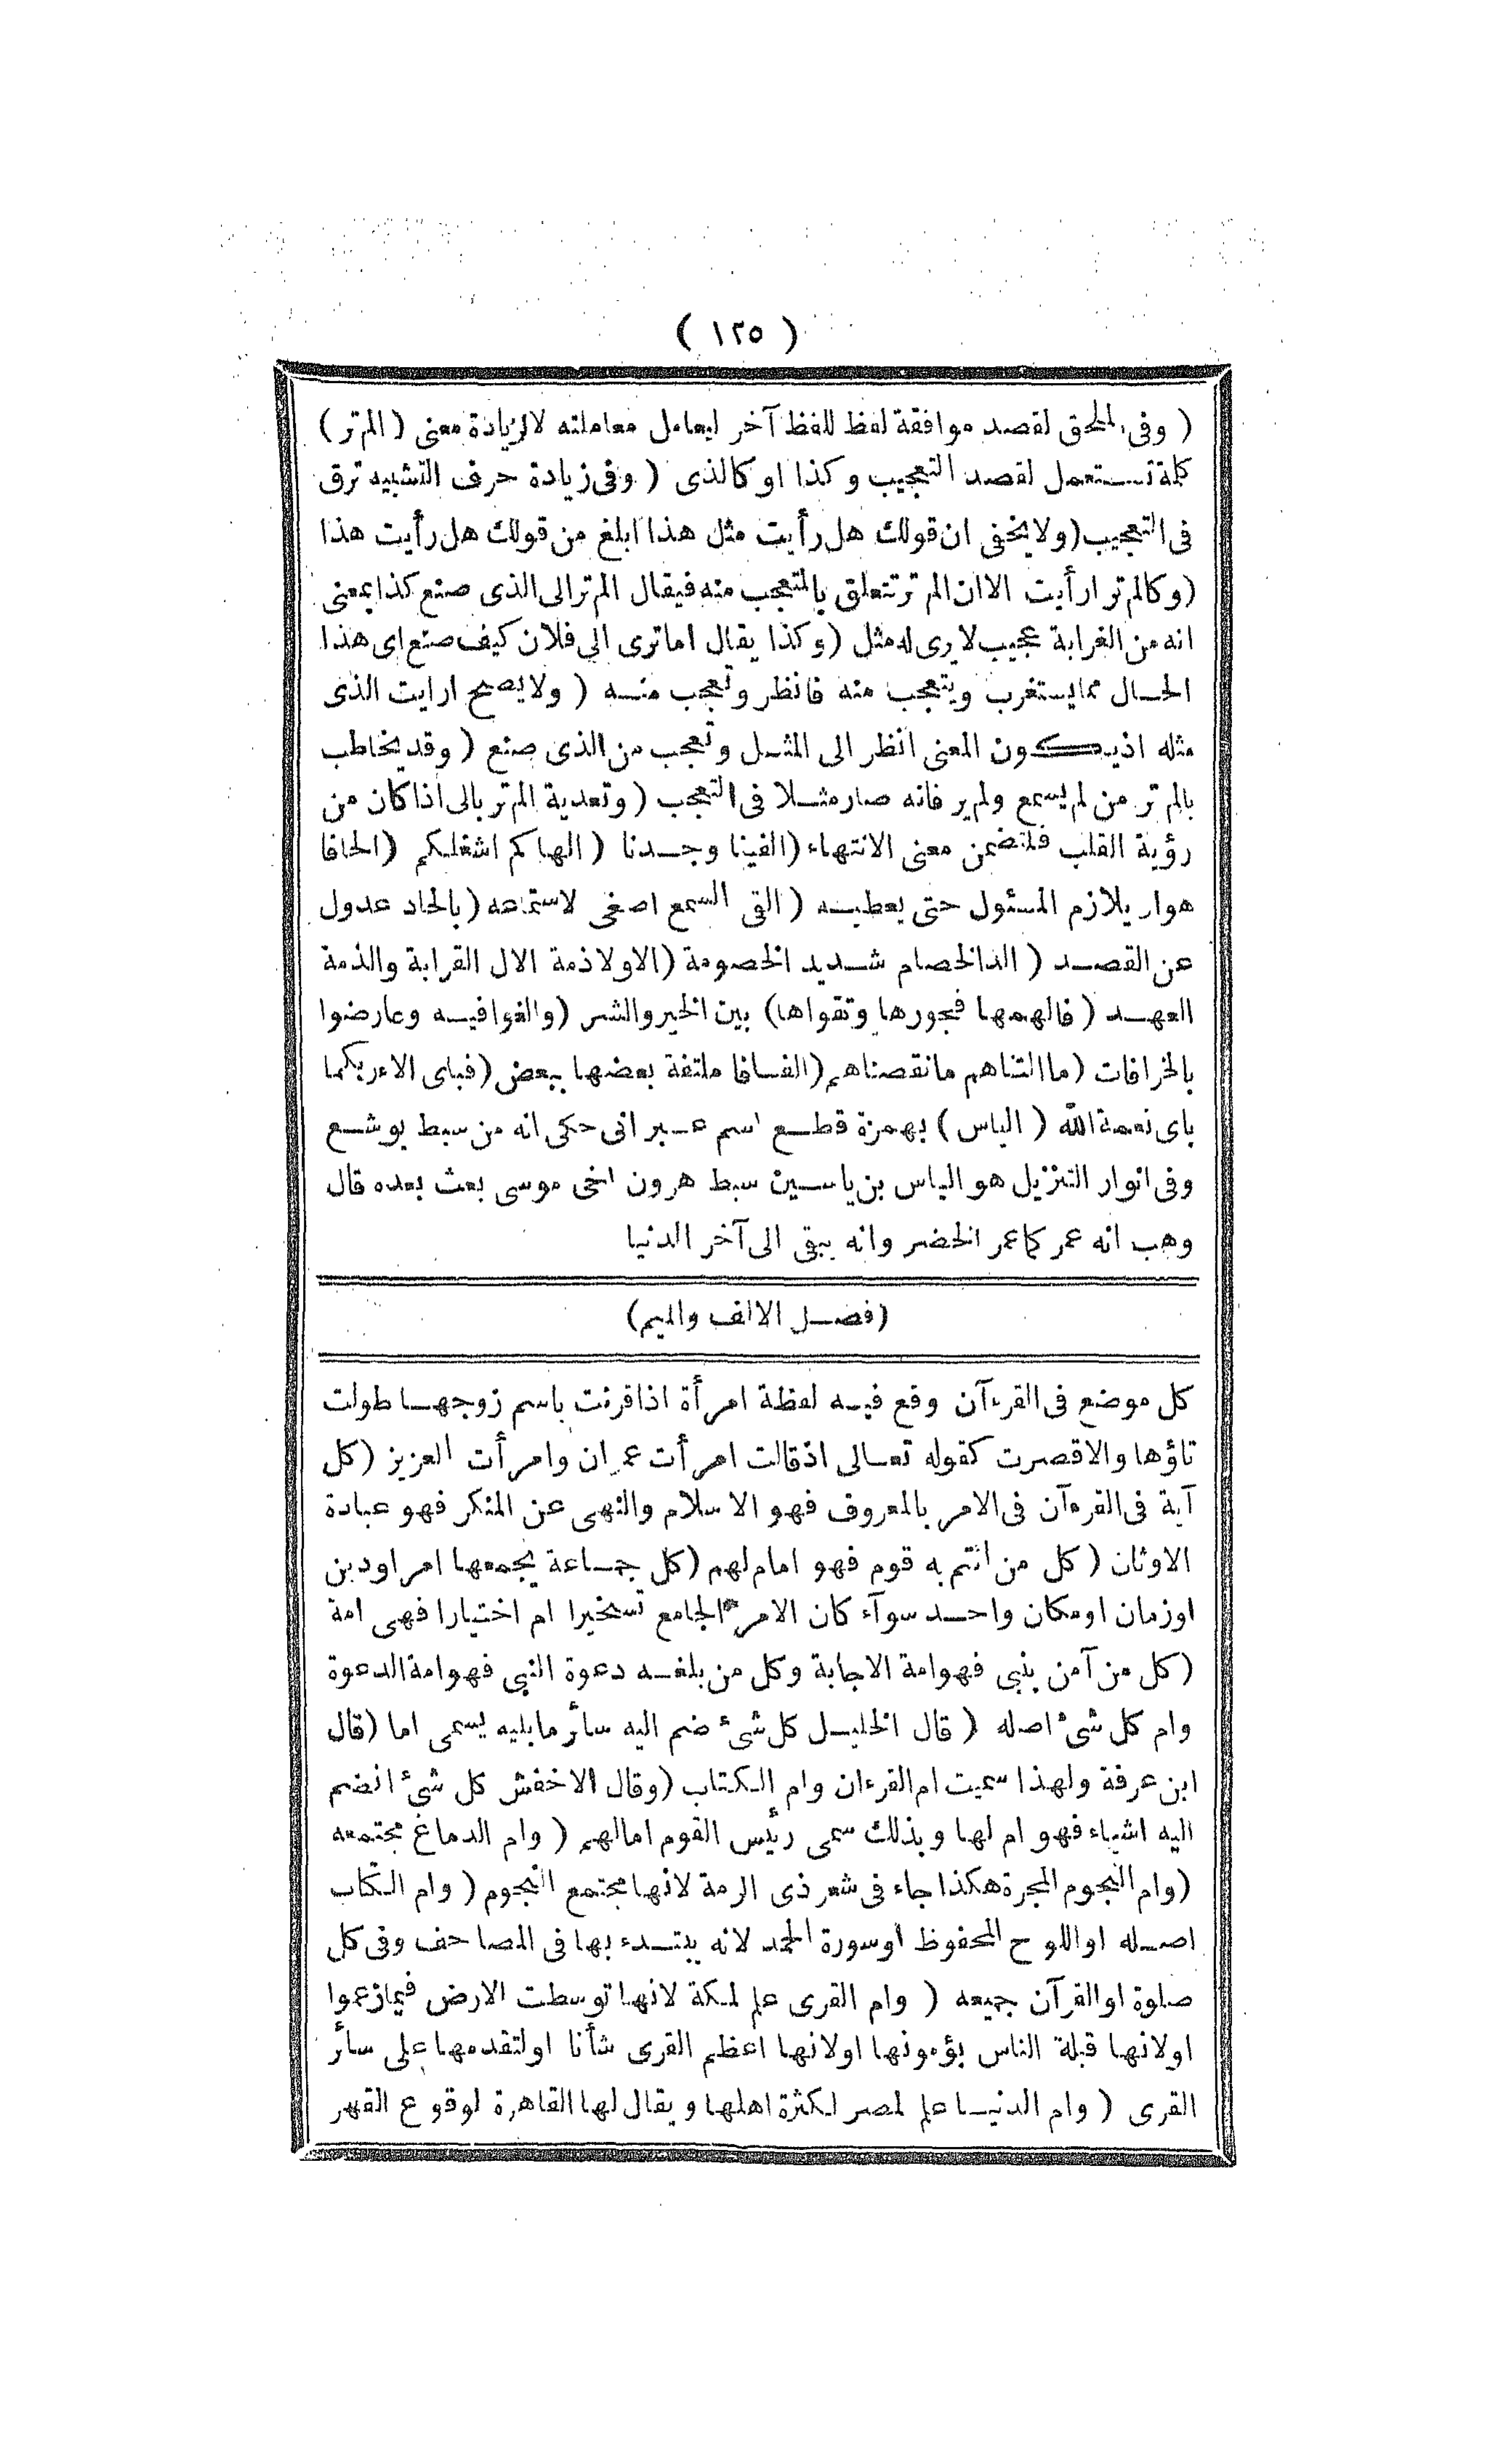 ( ١٢٥ )
( وفى الملحق لقصد موافقة لفظ للفظ آخر ليعامل معاملته لا لزيادة معنى ( الم تر )
كلمة تستعمل لقصد التعجيب وكذا او كالذى ( وفى زيادة حرف التشبيه ترق
فى التعجيب ( ولا يخفى ان قولك هل رأيت مثل هذا ابلغ من قولك هل رأيت هذا
( وكالم تر ارأيت الا ان الم تر تتعلق بالمتعجب منه فيقال الم تر الى الذى صنع كذا بمعنى
انه من الغرابة عجيب لا يرى له مثل ( وكذا يقال اما ترى الى فلان كيف صنع اى هذا
الحال مما يستغرب ويتعجب منه فانظر وتعجب منه ( ولا يصح ارايت الذى
مثله اذ يكون المعنى انظر الى المثل وتعجب من الذى صنع ( وقد يخاطب
بالم تر من لم يسمع ولم ير فانه صار مثلا فى التعجب ( وتعدية الم تر بالى اذا كان من
رؤية القلب فلتضمن معنى الانتهاء ( الفينا وجدنا ( الهاكم اشغلكم ( الحافا
هو ان يلازم المسئول حتى يعطيه ( القى السمع اصغى لاستماعه ( بالحاد عدول
عن القصد ( الد الخصام شديد الخصومة ( الا ولا ذمة الال القرابة والذمة
العهد ( فالهمها فجورها وتقواها ) بين الخير والشر ( والغوا فيه وعارضوا
بالخرافات ( ما التناهم ما نقصناهم ( الفافا ملتفة بعضها ببعض ( فباى الاء ربكما
باى نعمة الله ( الياس ) بهمزة قطع اسم عبرانى حكى انه من سبط يوشع
وفى انوار التنزيل هو الياس بن ياسين سبط هرون اخى موسى بعث بعده قال
وهب انه عمر كما عمر الخضر وانه يبقى الى آخر الدنيا
(فصل الالف والميم)
كل موضع فى القرءآن وقع فيه لفظة امرأة اذا قرنت باسم زوجها طولت
تاؤها والا قصرت كقوله تعالى اذ قالت امرأت عمران وامرأت العزيز ( كل
آية فى القرءآن فى الامر بالمعروف فهو الاسلام والنهى عن المنكر فهو عبادة
الاوثان ( كل من ائتم به قوم فهو امام لهم ( كل جماعة يجمعها امر او دين
او زمان او مكان واحد سوآء كان الامر الجامع تسخيرا ام اختيارا فهى امة
( كل من آمن بنبى فهو امة الاجابة وكل من بلغه دعوة النبى فهو امة الدعوة
وام كل شئ اصله ( قال الخليل كل شئ ضم اليه سائر ما يليه يسمى اما ( قال
ابن عرفة ولهذا سميت ام القرءان وام الكتاب ( وقال الاخفش كل شئ انضم
اليه اشياء فهو ام لها وبذلك سمى رئيس القوم اما لهم ( وام الدماغ مجتمعه
( وام النجوم المجرة هكذا جاء فى شعر ذى الرمة لانها مجتمع النجوم ( وام الكتاب
اصله او اللوح المحفوظ او سورة الحمد لانه يبتدء بها فى المصاحف وفى كل
صلوة او القرآن جميعه ( وام القرى علم لمكة لانها توسطت الارض فيما زعموا
او لانها قبلة الناس يؤمونها او لانها اعظم القرى شأنا او لتقدمها على سائر
القرى ( وام الدنيا علم لمصر لكثرة اهلها ويقال لها القاهرة لوقوع القهر